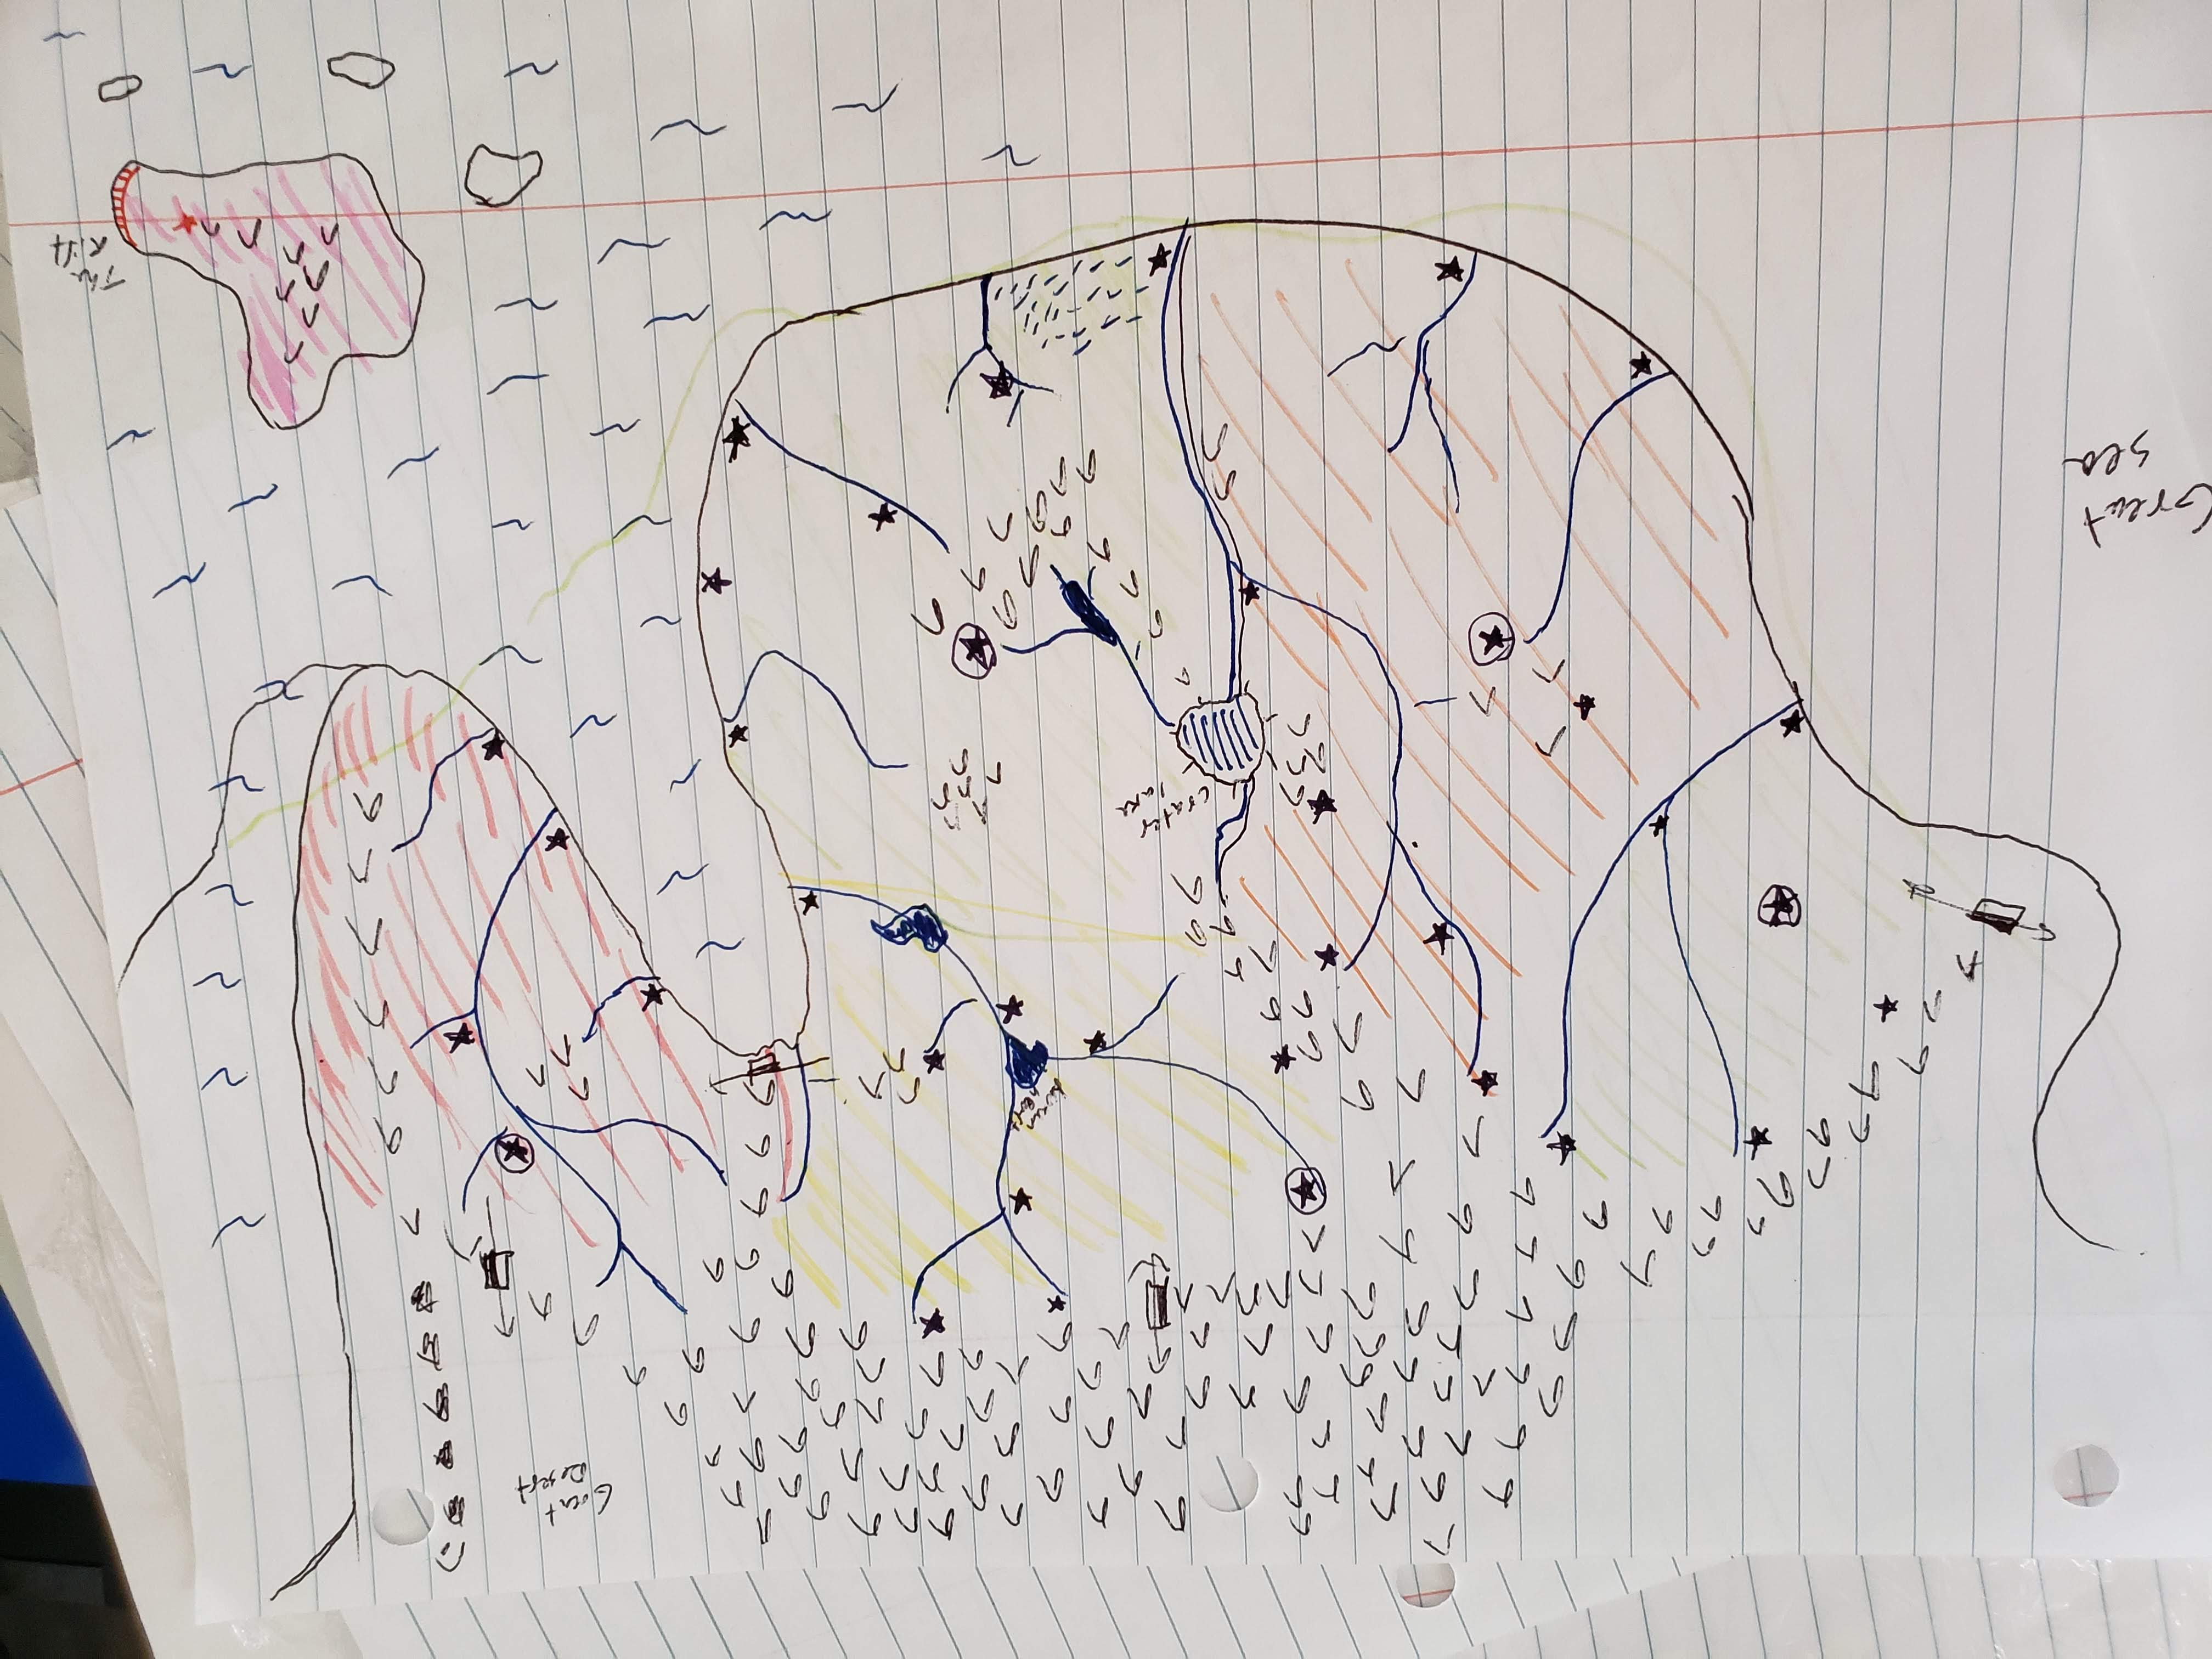 Great
Desert
Crater
lake
Great
sea
The
Rift